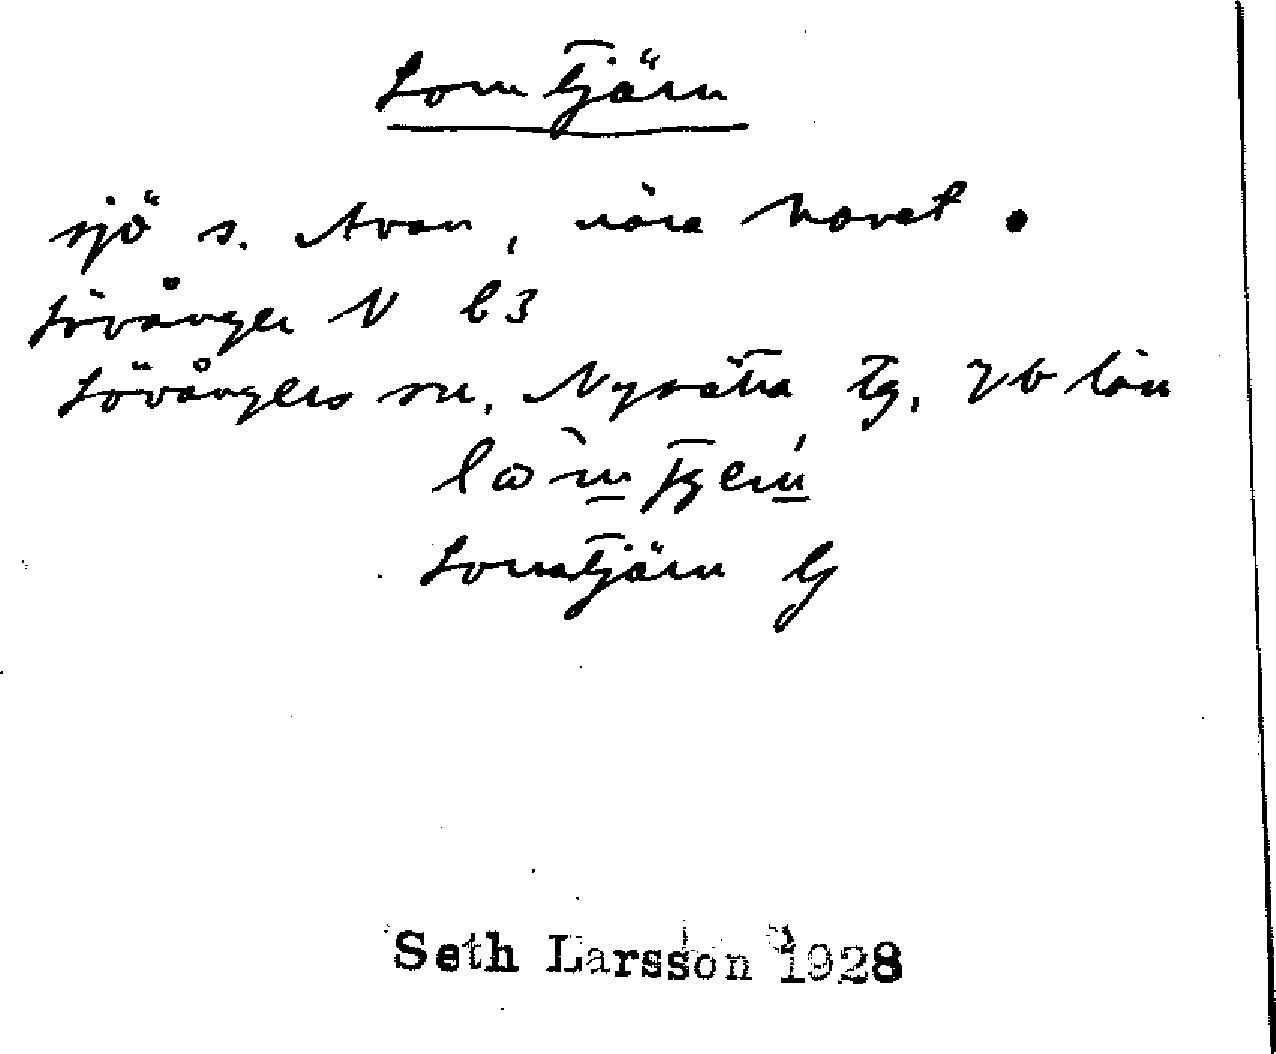 Lomtjärn
sjö s. Avan, nära havet.
Lövånger N b3
Lövångers sn, Nysätra tg, Vb län
Lomtjärn G
Seth Larsson 1928